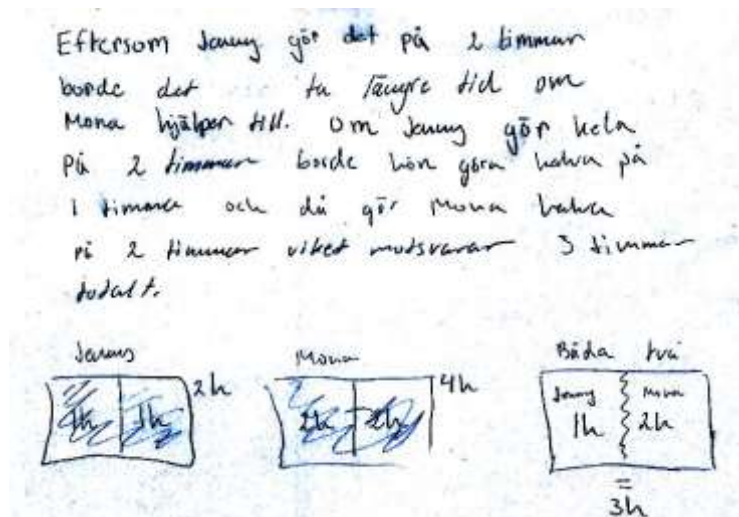 Eftersom Jenny gör det på 2 timmar
borde det ta längre tid om
Mona hjälper till. Om Jenny gör hela
på 2 timmar borde hon göra halva på
1 timma och då gör Mona halva
på 2 timmar vilket motsvarar 3 timmar
totalt.
Jennys Mona Båda två
1h 1h 2h 2h 2h 4h Jenny 1h Mona 2h
=
3h